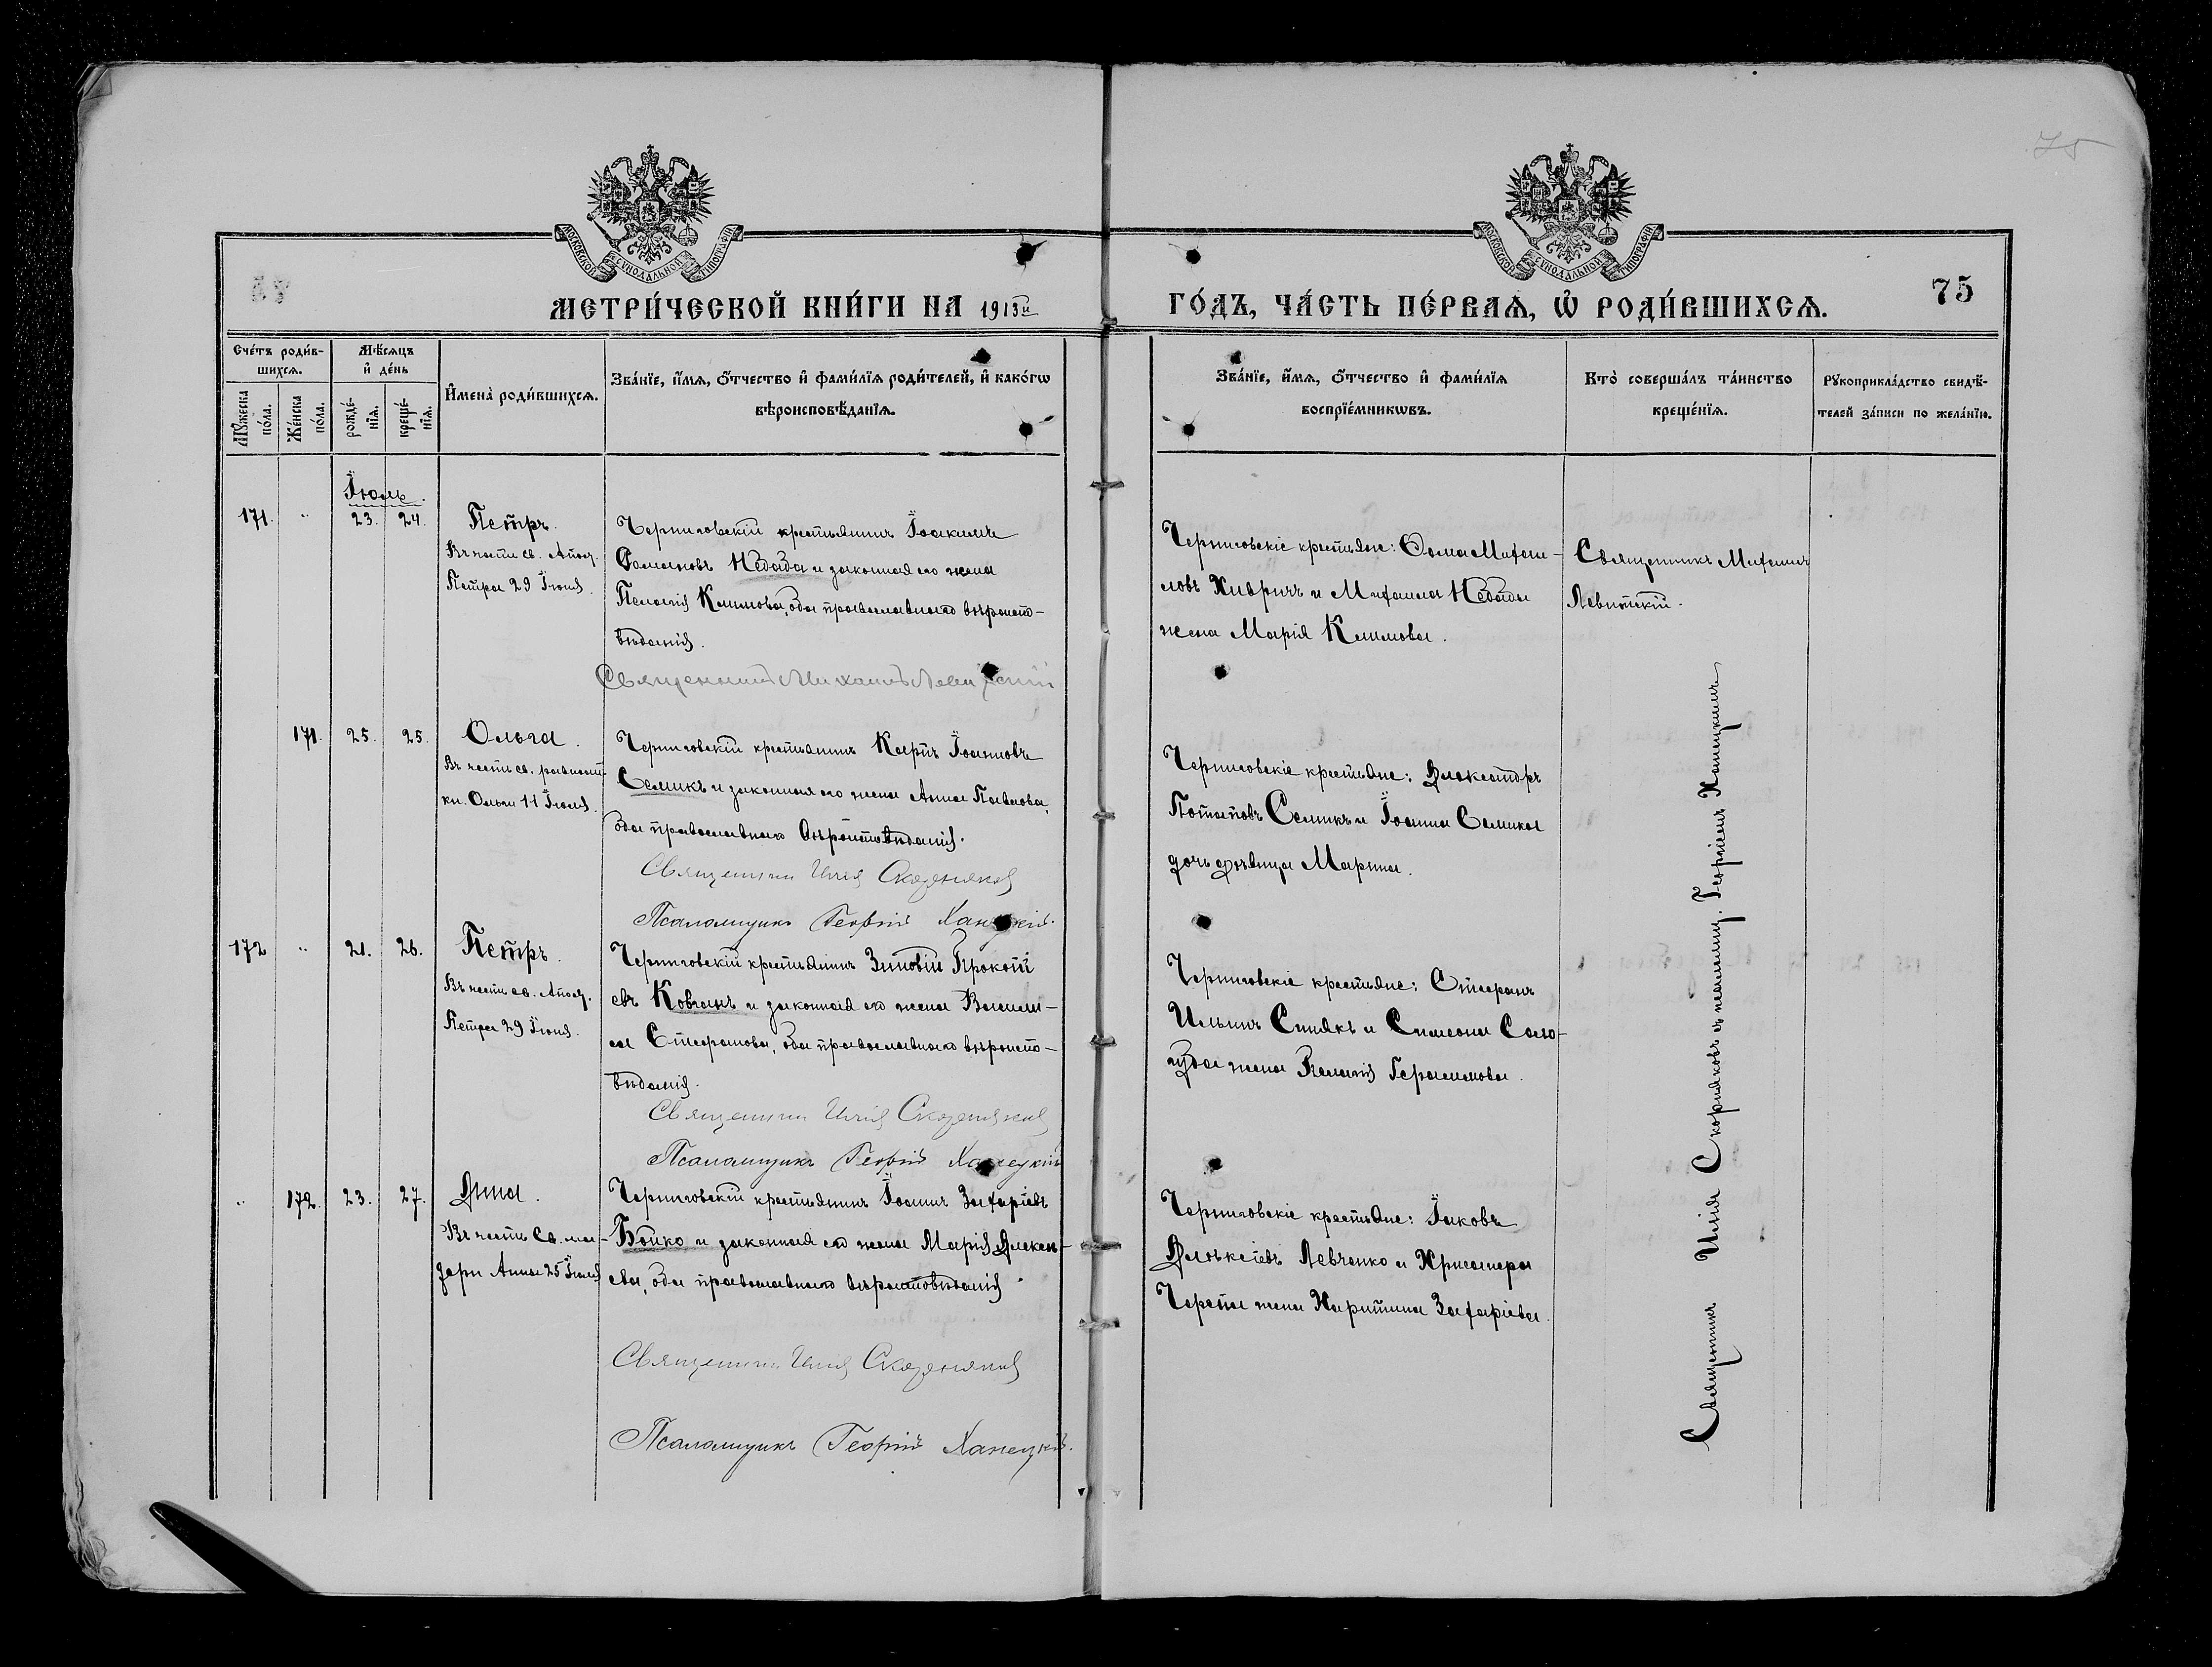 75
МОСКОВСКОЙ СУНОДАЛЬНОЙ ТИПОГРАФИИ
МОСКОВСКОЙ СУНОДАЛЬНОЙ ТИПОГРАФИИ
МЕТРИ́ЧЕСКОЙ КНИ́ГИ НА 1913й
ГО́ДЪ, ЧА́СТЬ ПЕ́РВАѦ, Ѡ҆ РОДИ́ВШИХСѦ.
75
Сче́тъ роди́в-
шихсѧ.
Мѣ́сѧцъ
и҆ де́нь
Мꙋ́жеска
по́ла.
Же́нска
по́ла.
рожде́-
нїѧ.
креще́-
нїѧ.
И҆мена̀ роди́вшихсѧ.
Зва́нїе, и҆́мѧ, ѻ҆́тчество и҆ фами́лїѧ роди́телей, и҆ како́гѡ
вѣроисповѣ́данїѧ.
Зва́нїе, и҆́мѧ, ѻ҆́тчество и҆ фами́лїѧ
воспрїе́мникѡвъ.
Кто̀ соверша́лъ та́инство
креще́нїѧ.
Рꙋкоприкла́дство свидѣ́-
телей за́писи по жела́нїю.
Іюль.
171. „ 23. 24. Петръ.
Въ честь св. Апост.
Петра 29 Іюня.
Черниговскій крестьянинъ Іоакимъ
Фомановъ Недода и законная его жена
Пелагія Климова, оба православнаго вѣроиспо-
вѣданія.
Священникъ Михаилъ Левитскій
Черниговскіе крестьяне: Фома Михаи-
ловъ Хивричъ и Михаила Недоды
жена Марія Климова.
Священникъ Михаилъ
Левитскій.
171. 25. 25. Ольга.
Въ честь св. равноап.
кн. Ольги 11 Іюля.
Черниговскій крестьянинъ Карпъ Іоанновъ
Семикъ и законная его жена Анна Павлова,
оба православнаго вѣроисповѣданія.
Священникъ Илія
Псаломщикъ Георгій Ханецкій.
Черниговскіе крестьяне: Александръ
Потаповъ Семикъ и Іоанна Семика
дочь дѣвица Марина.
172 „ 21. 26. Петръ.
Въ честь св. Апост.
Петра 29 Іюня.
Черниговскій крестьянинъ Зиновій Прокопі
евъ Ковганъ и законная его жена Василис-
са Стефанова, оба православнаго вѣроиспо-
вѣданія.
Священникъ Илія
Псаломщикъ Георгій Ханецкій
Черниговскіе крестьяне: Стефанъ
Ильинъ Синякъ и Симеона Соло-
жена Пелагія Герасимова.
„ 172. 23. 27. Анна.
Въ честь Св. ма-
тери Анны 25 Іюля
Черниговскій крестьянинъ Іоаннъ Захаріевъ
Бойко и законная его жена Марія Алексѣ-
ева, оба православнаго вѣроисповѣданія.
Священникъ Илія
Псаломщикъ Георгій Ханецкій.
Черниговскіе крестьяне: Іаковъ
Алексіевъ Левченко и Хрисанфа
Черепа жена Харитина Захаріева.
Священникъ Илія съ псаломщ. Георгіемъ Ханецкимъ